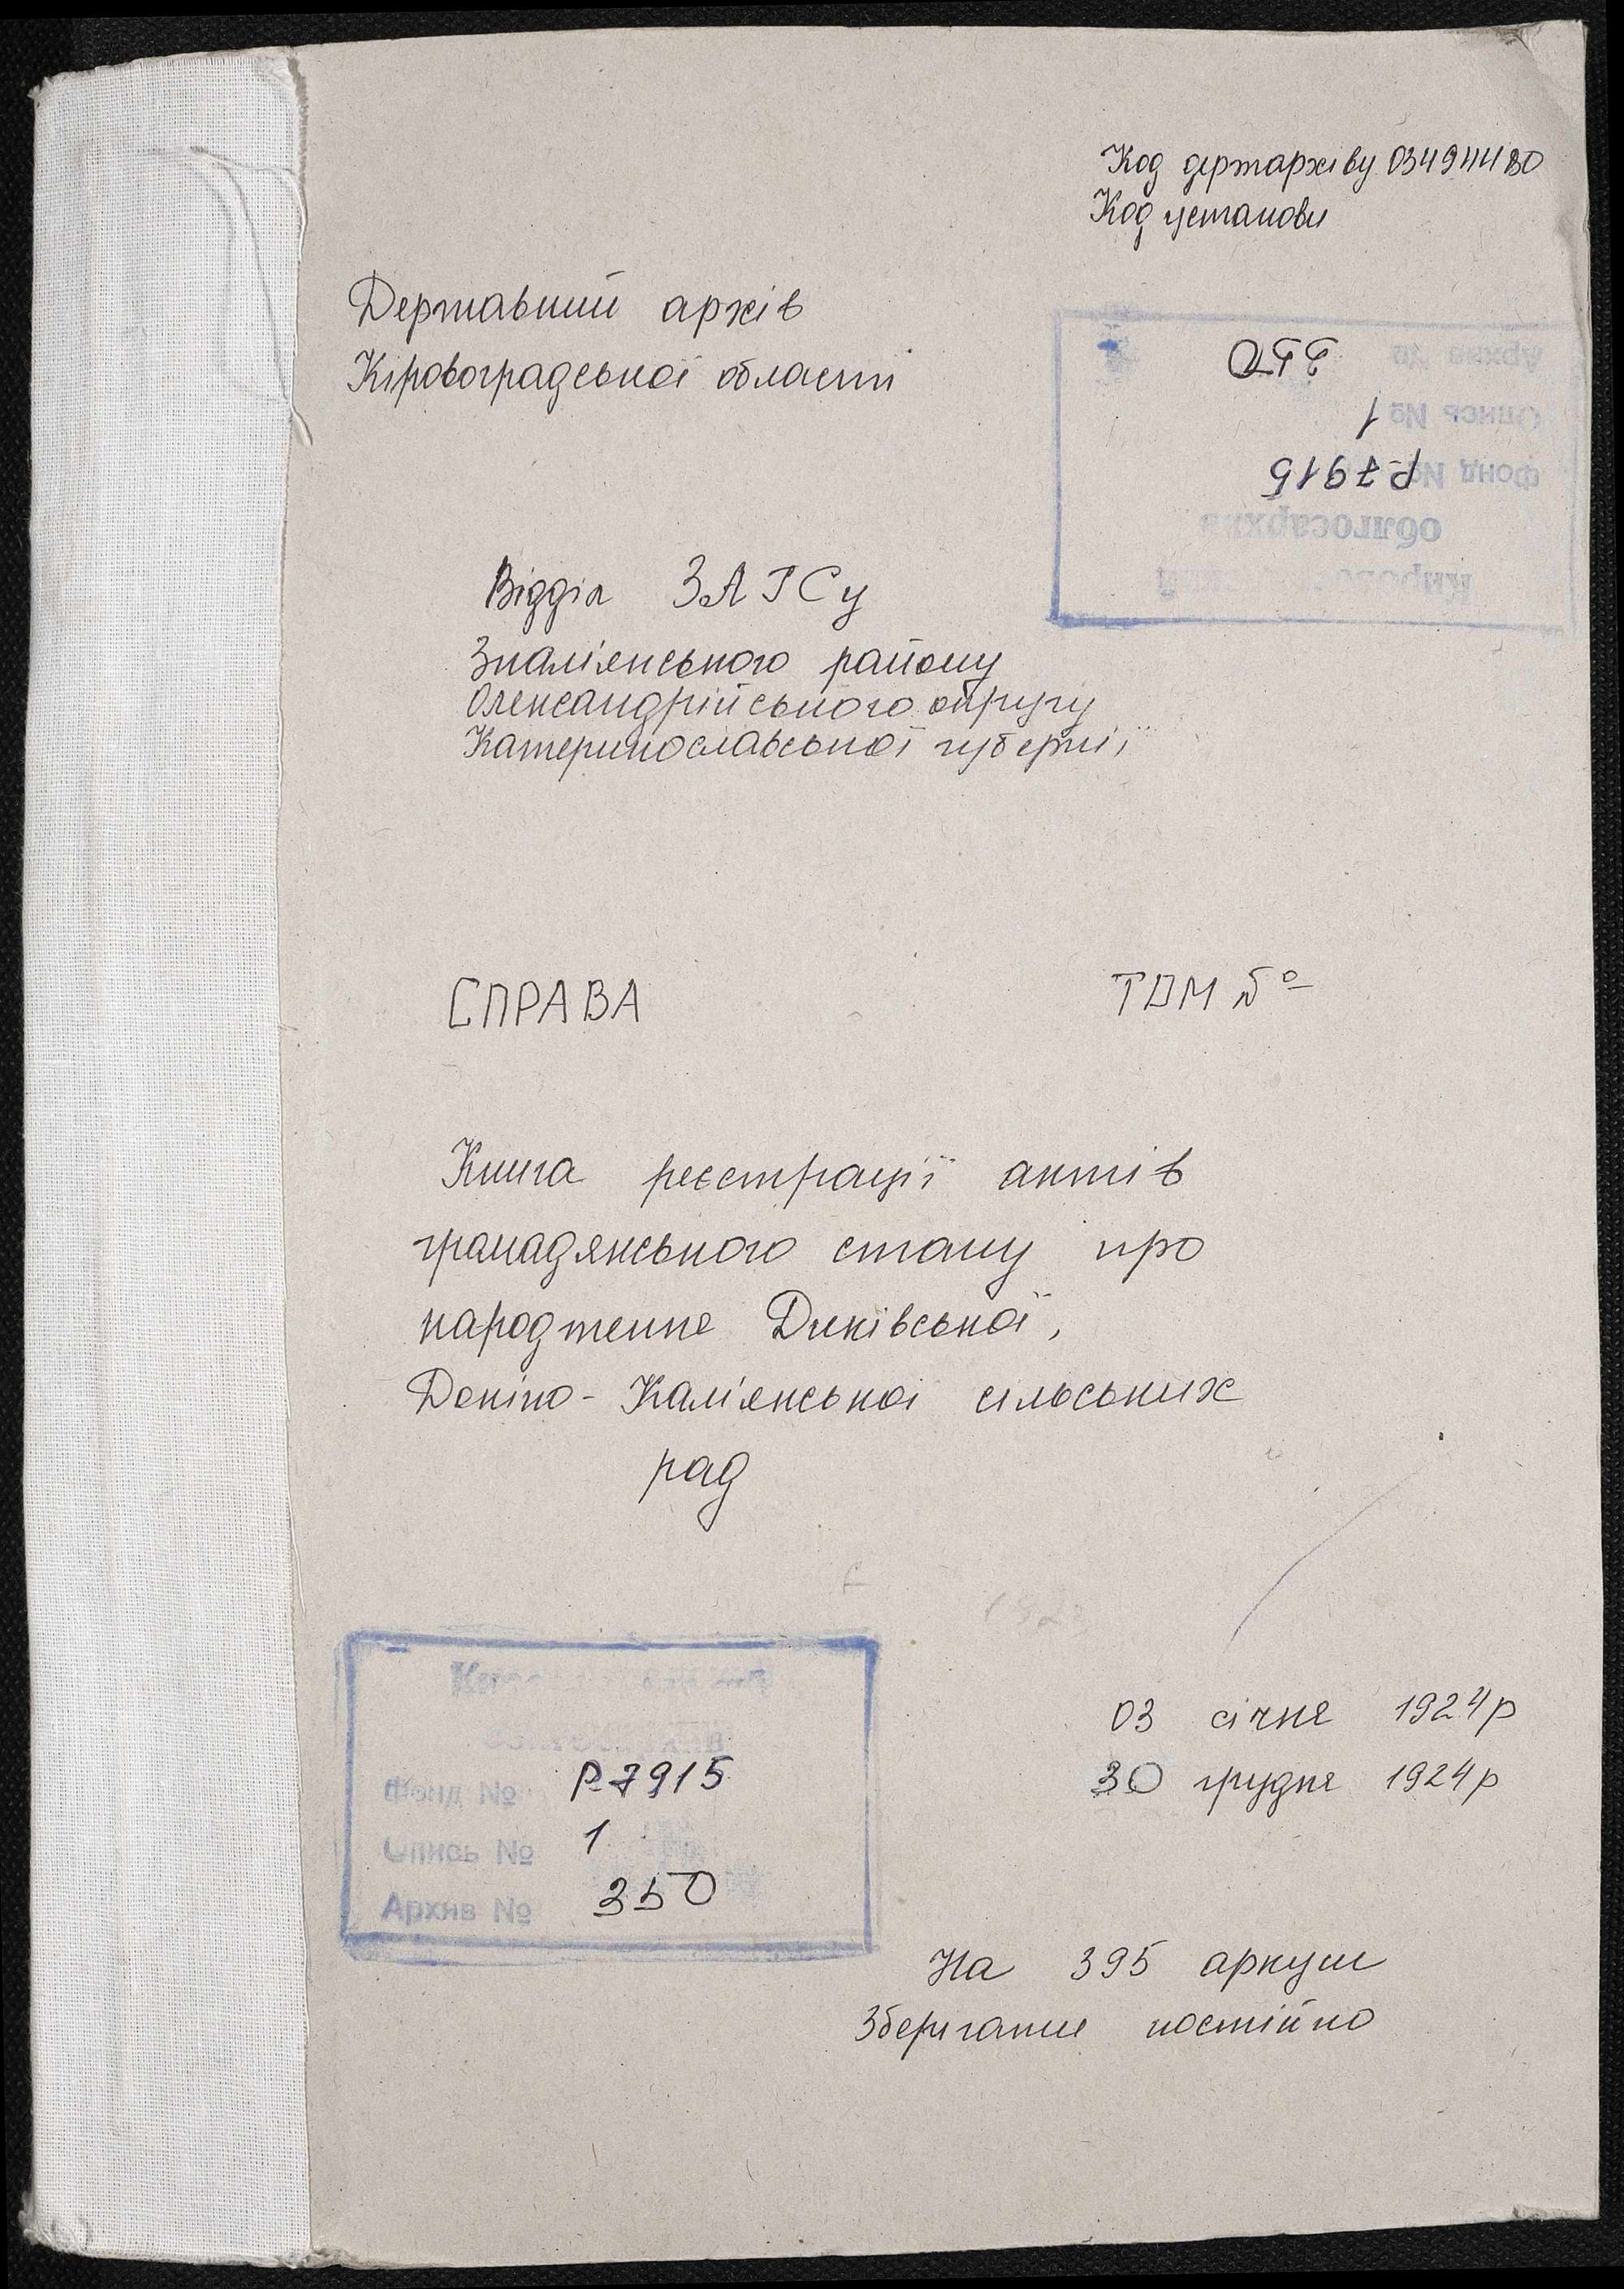 Код держархіву 03494480
Код установи
Державний архів
Кіровоградської області
350
Архив №
1
Опись №
Р-7915
Фонд №
облгосархив
Відділ ЗАГСу
Знам'янського району
Олександрійського округу
Катеринославської губернії
СПРАВА ТОМ №
Книга реєстрації актів
громадянського стану про
народження Диківської,
Доніно-Кам'янської сільських
рад
03 січня 1924р
30 грудня 1924р
Фонд № Р-7915
Опись № 1
Архив № 350
На 395 аркуш
Зберігання постійно